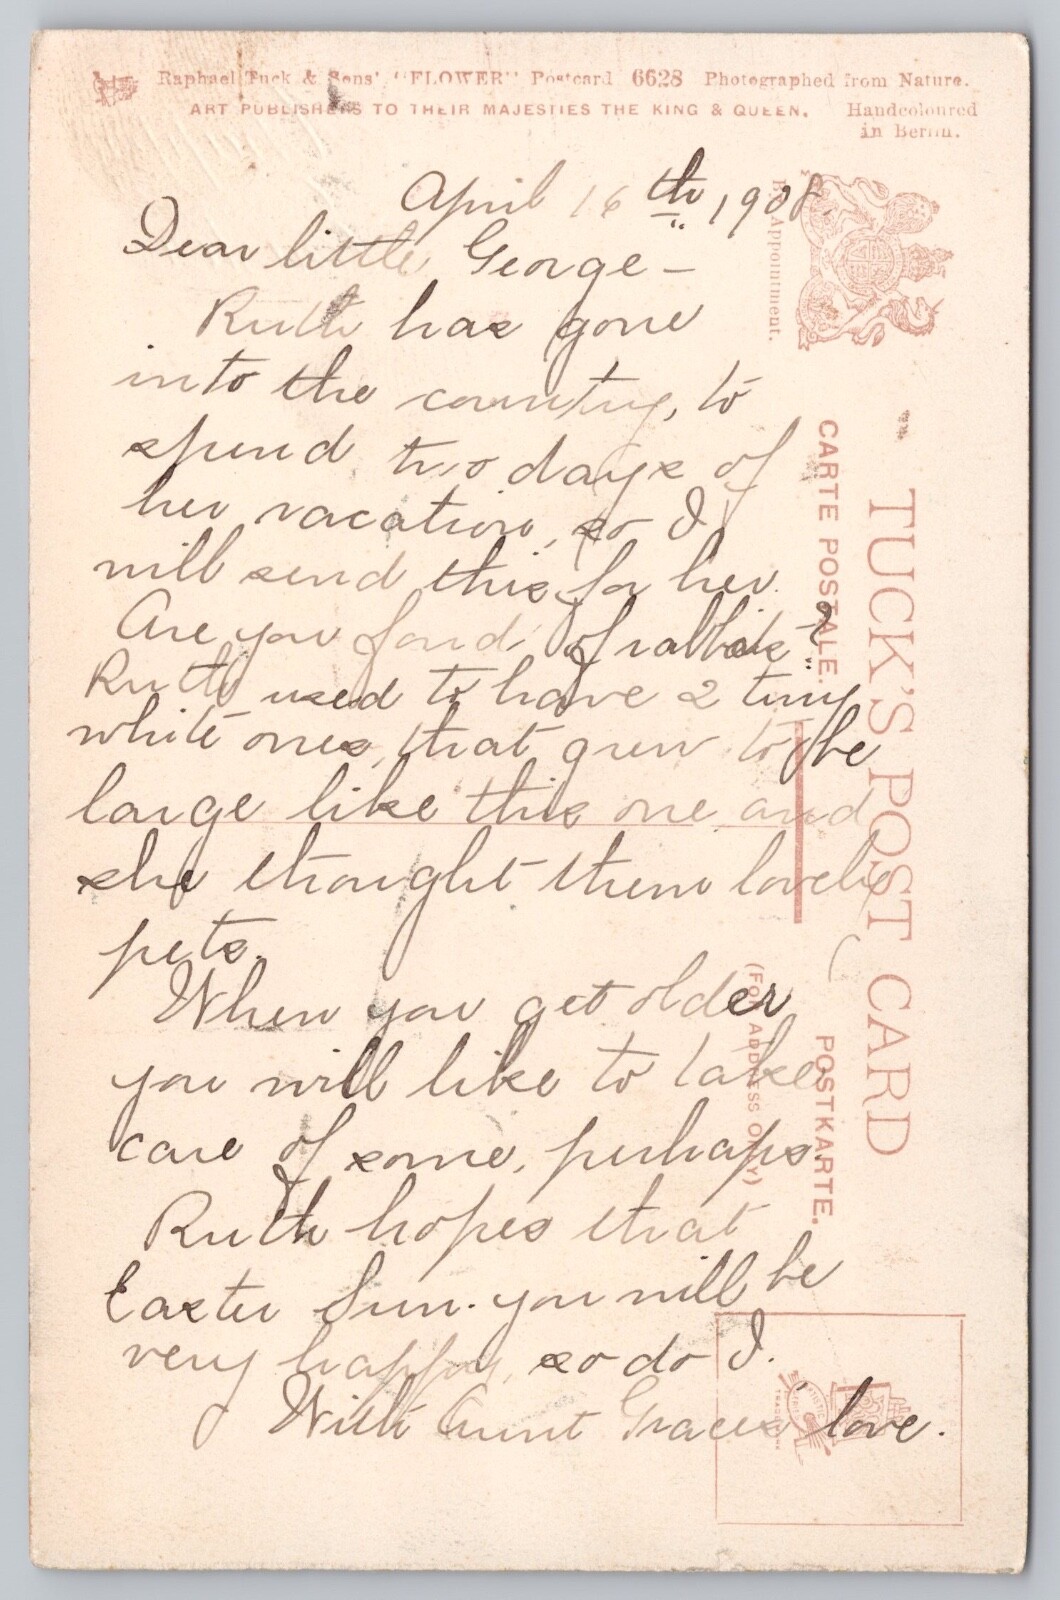 Raphael Tuck & Sons' "FLOWER" Postcard 6628 Photographed from Nature.
ART PUBLISHERS TO THEIR MAJESTIES THE KING & QUEEN. Handcoloured
in Berlin.
By Appointment.
TUCK'S POST CARD
CARTE POSTALE. POSTKARTE.
(FOR ADDRESS ONLY)
April 16th, 1908.
Dear little George –
Ruth has gone
into the country, to
spend two days of
her vacation, so I
will send this for her.
Are you fond of rabbits?
Ruth used to have 2 tiny
white ones, that grew to be
large like this one and
she thought them lovely
pets.
When you get older
you will like to take
care of some, perhaps.
Ruth hopes that
Easter Sun. you will be
very happy, so do I.
With Aunt Grace's love.